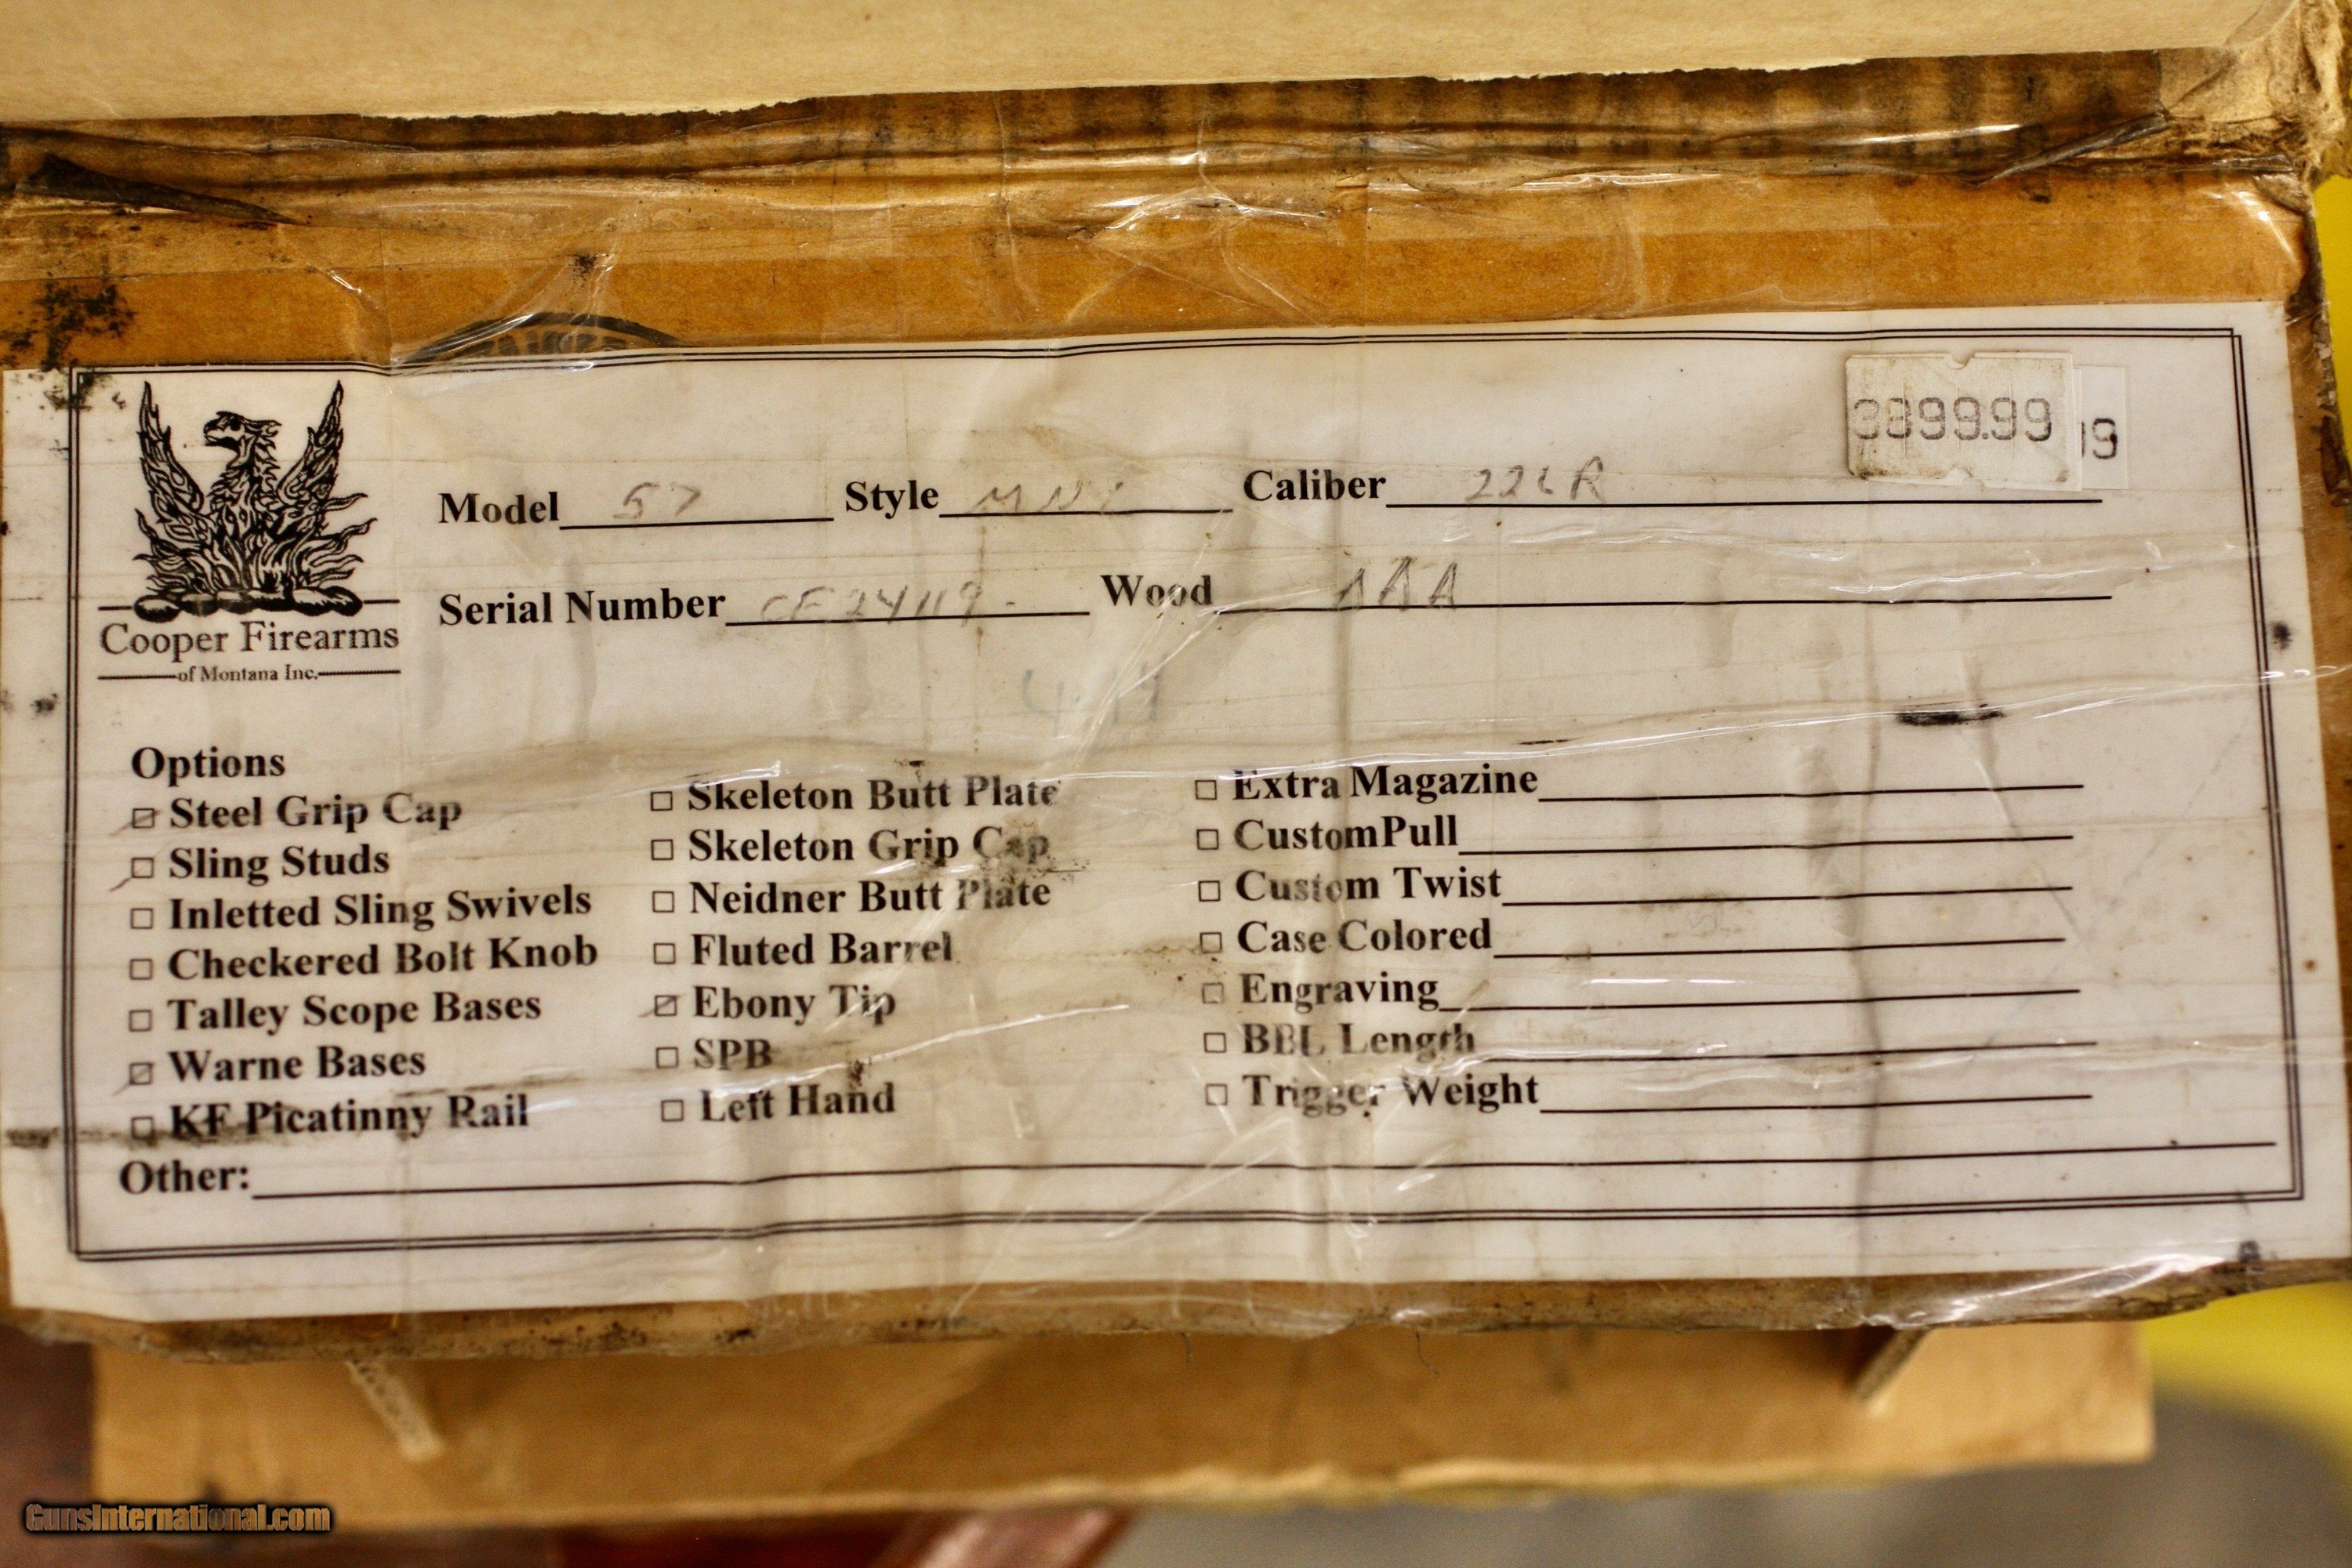 3899.99
19
Model 57 Style Caliber 22LR
Serial Number CF24119 Wood AAA
Cooper Firearms
of Montana Inc.
Options
Steel Grip Cap
Sling Studs
Inletted Sling Swivels
Checkered Bolt Knob
Talley Scope Bases
Warne Bases
KF Picatinny Rail
Skeleton Butt Plate
Skeleton Grip Cap
Neidner Butt Plate
Fluted Barrel
Ebony Tip
SPB
Left Hand
Extra Magazine
CustomPull
Custom Twist
Case Colored
Engraving
BBL Length
Trigger Weight
Other:
GunsInternational.com